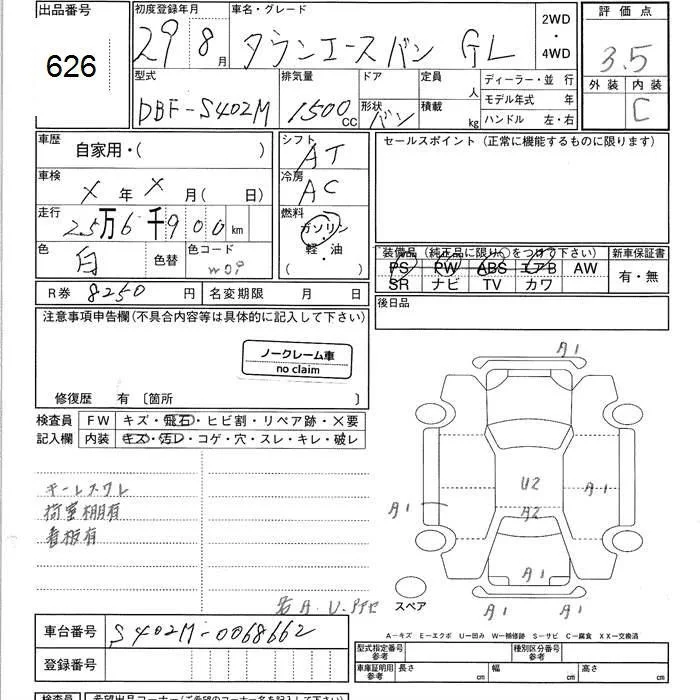 出品番号
626
初度登録年月
29 8月
車名・グレード
タウンエースバン GL
2WD
・
4WD
評価点
3.5
外装 内装
C
型式
DBF-S402M
排気量
1500cc
ドア
形状
バン
定員
人
積載
kg
ディーラー・並 行
モデル年式 年
ハンドル 左・右
車歴
自家用・( )
車検
X年X月(日)
走行
25万6千900km
色
白
色替
色コード
W09
シフト
AT
冷房
AC
燃料
ガソリン
・
軽・油
( )
セールスポイント(正常に機能するものに限ります)
装備品(純正品に限り○をつけて下さい)
PS PW ABS エアB AW
SR ナビ TV カワ
新車保証書
有・無
R券 8250円
名変期限 月 日
後日品
注意事項申告欄(不具合内容等は具体的に記入して下さい)
ノークレーム車
no claim
修復歴 有〔箇所 〕
検査員
記入欄
FW キズ・飛石・ヒビ割・リペア跡・×要
内装 キズ・汚レ・コゲ・穴・スレ・キレ・破レ
キーレスワレ
荷室棚有
看板有
A1
U2
A2
A1
A1
A1
A1
A1
スペア
A-キズ E-エクボ U-凹み W-補修跡 S-サビ C-腐食 XX-交換済
車台番号
S402M-0068662
登録番号
型式指定番号
参考
種別区分番号
参考
車庫証明用
参考
長さ cm
幅 cm
高さ cm
検査員
希望出品コーナー(ご希望のコーナー名を記入して下さい)